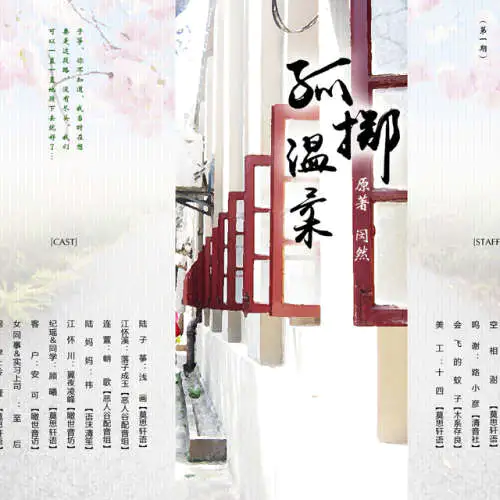 (第一期)
孤掷
温柔
原著 闵然
子筝,你不知道,我当时在想
要是这段路没有尽头,我们
可以一直一直地骑下去就好了...
[CAST]
陆子筝:浅画【莫思轩语】
江怀溪:落子成玉【恶人谷配音组】
连萱:朝歌【恶人谷配音组】
陆妈妈:祎【语沫清笙】
江怀川:翼夜凌峰【瞰世音坊】
纪瑶&同学:颜曦【莫思轩语】
客户:安可【瞰世音坊】
女同事&实习上司:至后
[STAFF
鸣谢:路小彦【清音社】
会飞的蚊子【木系存良】
美工:十四【莫思轩语】